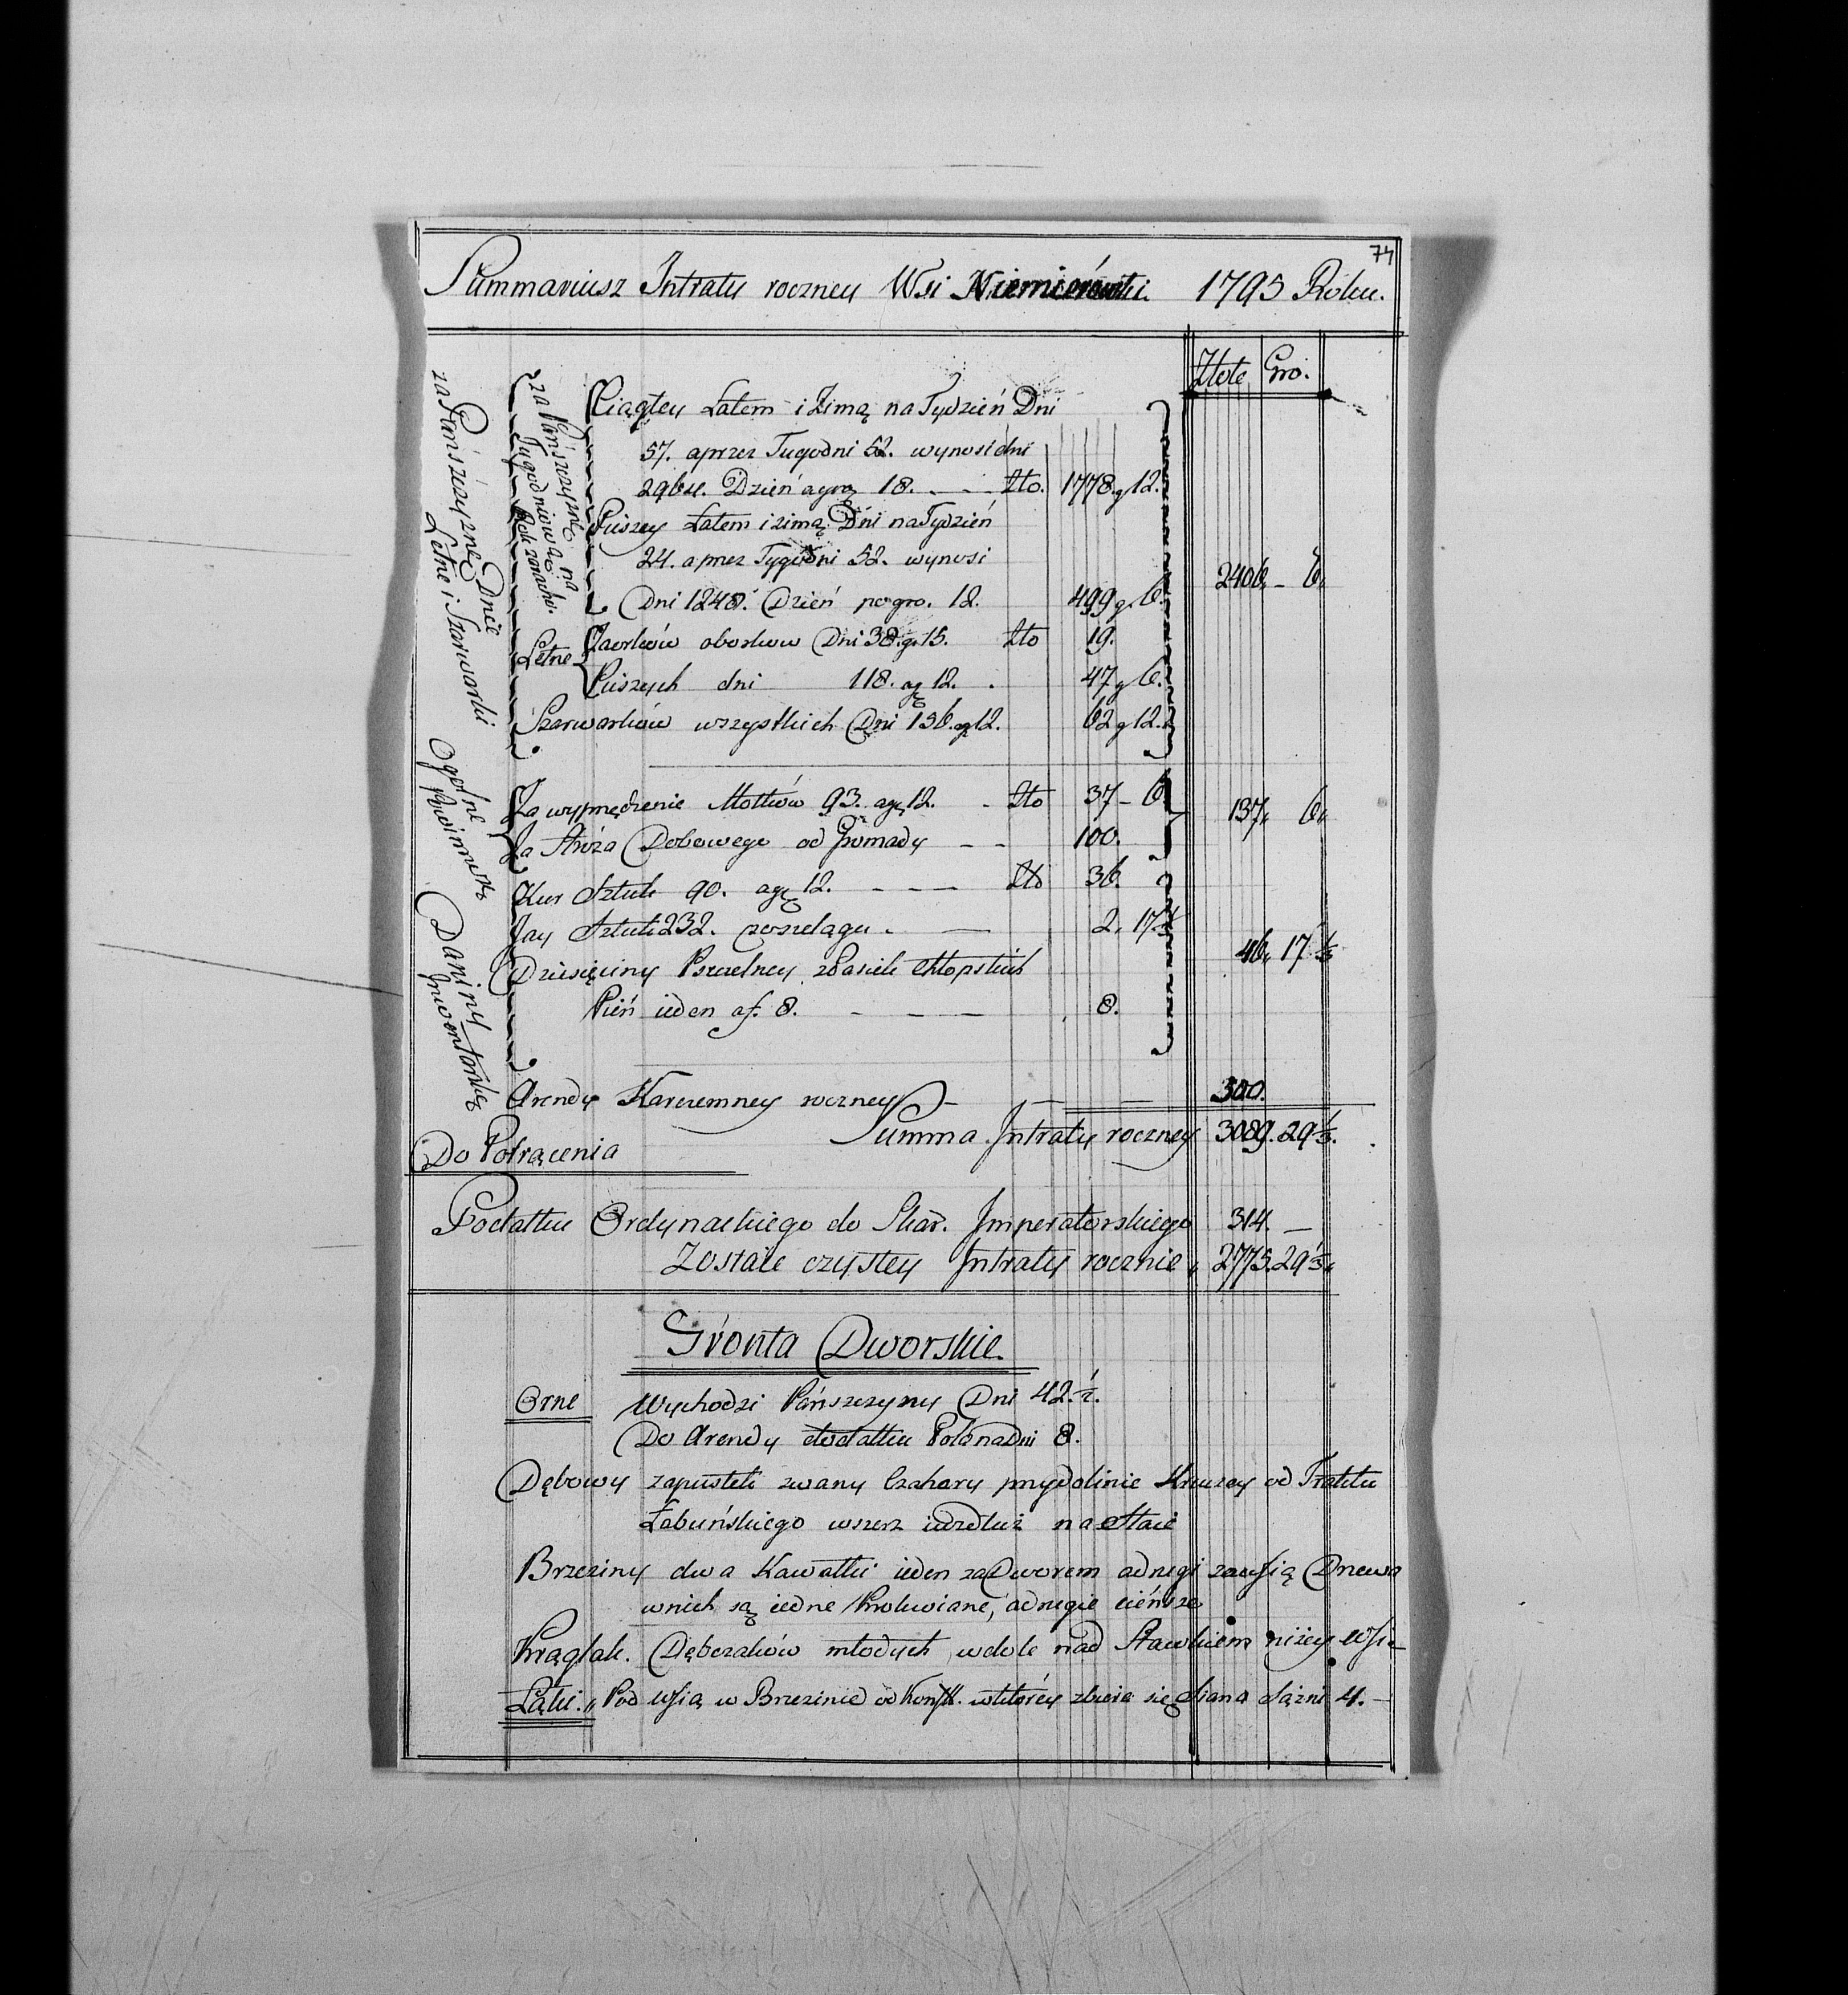 74
Summariusz Intraty roczney Wsi Niemierówki. 1795 Roku.
Złote Gro.
za Pańszczyznę Dnie
Letne i Szarwarki
za Pańszczyznę
Tygodniową na
Rok rachow.
Ciągłey Latem i Zimą na Tydzień Dni
57. a przez Tygodni 52. wynosi dni
2964. Dzień a gro 18. — — Zło. 1778. g 12.
Pieszey Latem i zimą Dni na Tydzień
24. a przez Tygodni 52. wynosi
Dni 1248. Dzień po gro. 12. 499 g. 6. 2406 „ 6 „
Letne Zaorków oborkow Dni 38. g. 15. Zło 19.
Pieszych dni 118. a g 12. 47 g 6.
Szarwarków wszystkich Dni 156. a g 12. 62 g 12.
Ogólne
Powinności
Za wyprzędzenie Motków 93. a g 12. - Zło 37 - 6 137 „ 6 „
Za Stróża Dobowego od Gromady — — 100.
Daniny
Inwentarskie
Kur Sztuk 90. a g 12. — — — Zło 36.
Jay Sztuk 232. po szelągu. — 2, 17 1/3
Dziesięciny Pszczelney z Pasiek Chłopskich 46 „ 17 1/3
Pień ieden a f. 8. — — — 8.
Arendy Karczemney roczney — — — 300.
Summa Intraty roczney 3089. 29 1/3.
Do Potrącenia
Podatku Ordynackiego do Skar. Imperatorskiego 314. —
Zostaie czystey Intraty rocznie „ 2775. 29 1/3 „
Gronta Dworskie.
Orne Wychodzi Pańszczyzny Dni 42. 1/2.
Do Arendy dodatku Pola na Dni 8.
Dębowy zapustek zwany Czahary przy dolinie Kruszey od Traktu
Łabuńskiego wszerz i wzdłuż na Staie
Brzeziny dwa Kawałki ieden za Dworem a drugi za wsią Drzewa
w nich są iedne Krokwiane, a drugie cieńsze
Krąglak. Dębczaków młodych w dole nad Stawkiem niżey Wsi —
Łąki. „ Pod Wsią w Brzezinie od Konst. w którey zbiera się Siana Sążni 4. —